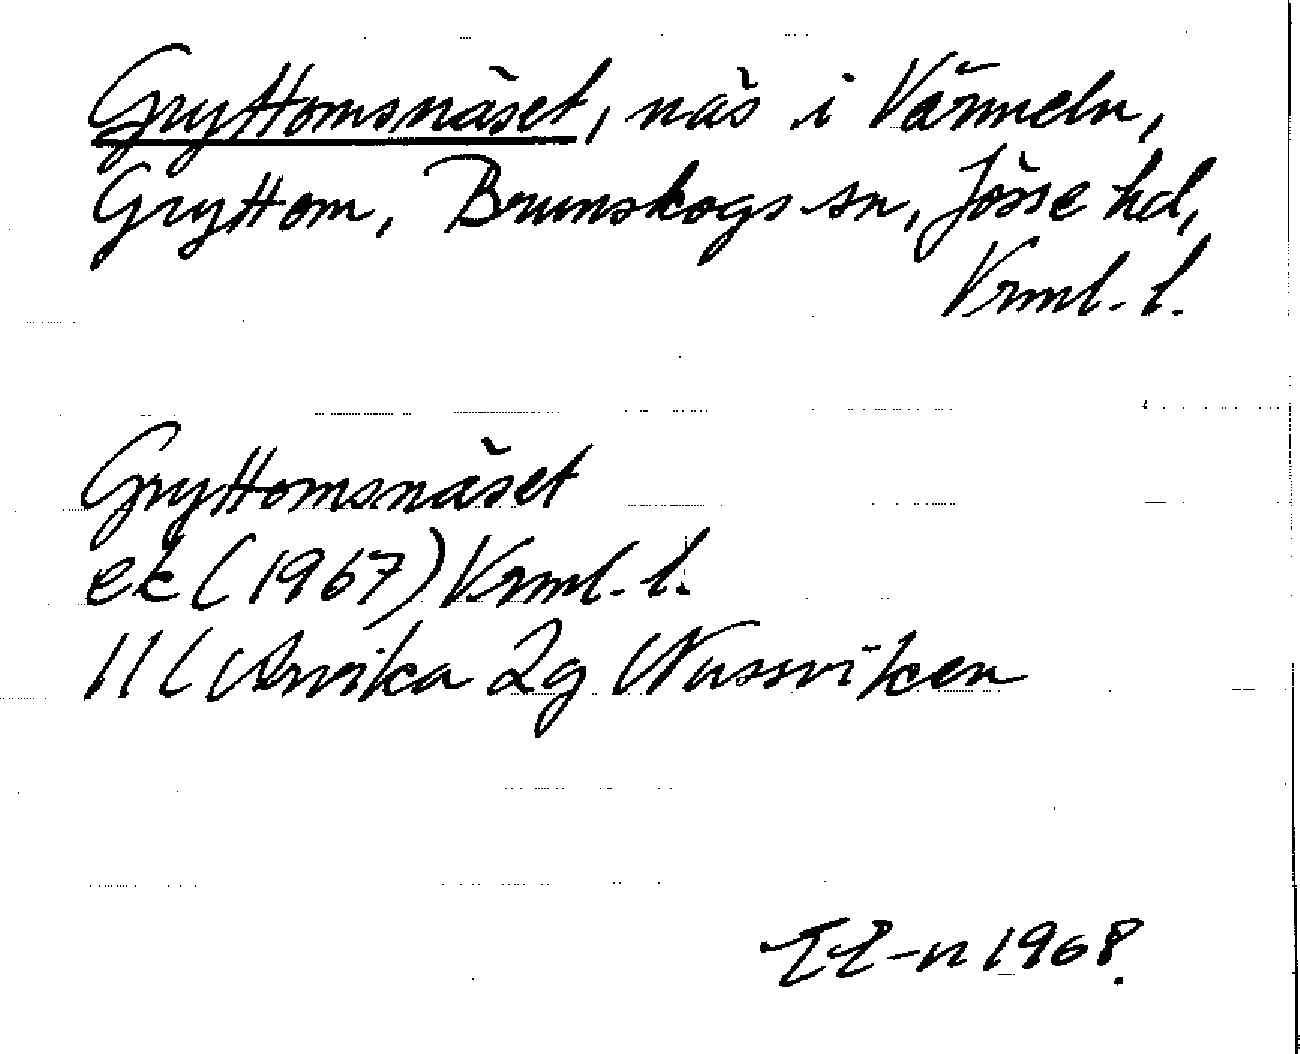 Gryttomsnäset, näs i Värmeln,
Gryttom, Brunskogs sn, Jösse hd,
Vrml. l.
Gryttomsnäset
ek (1967) Vrml. l.
11C Arvika 2g Nussviken
1968.